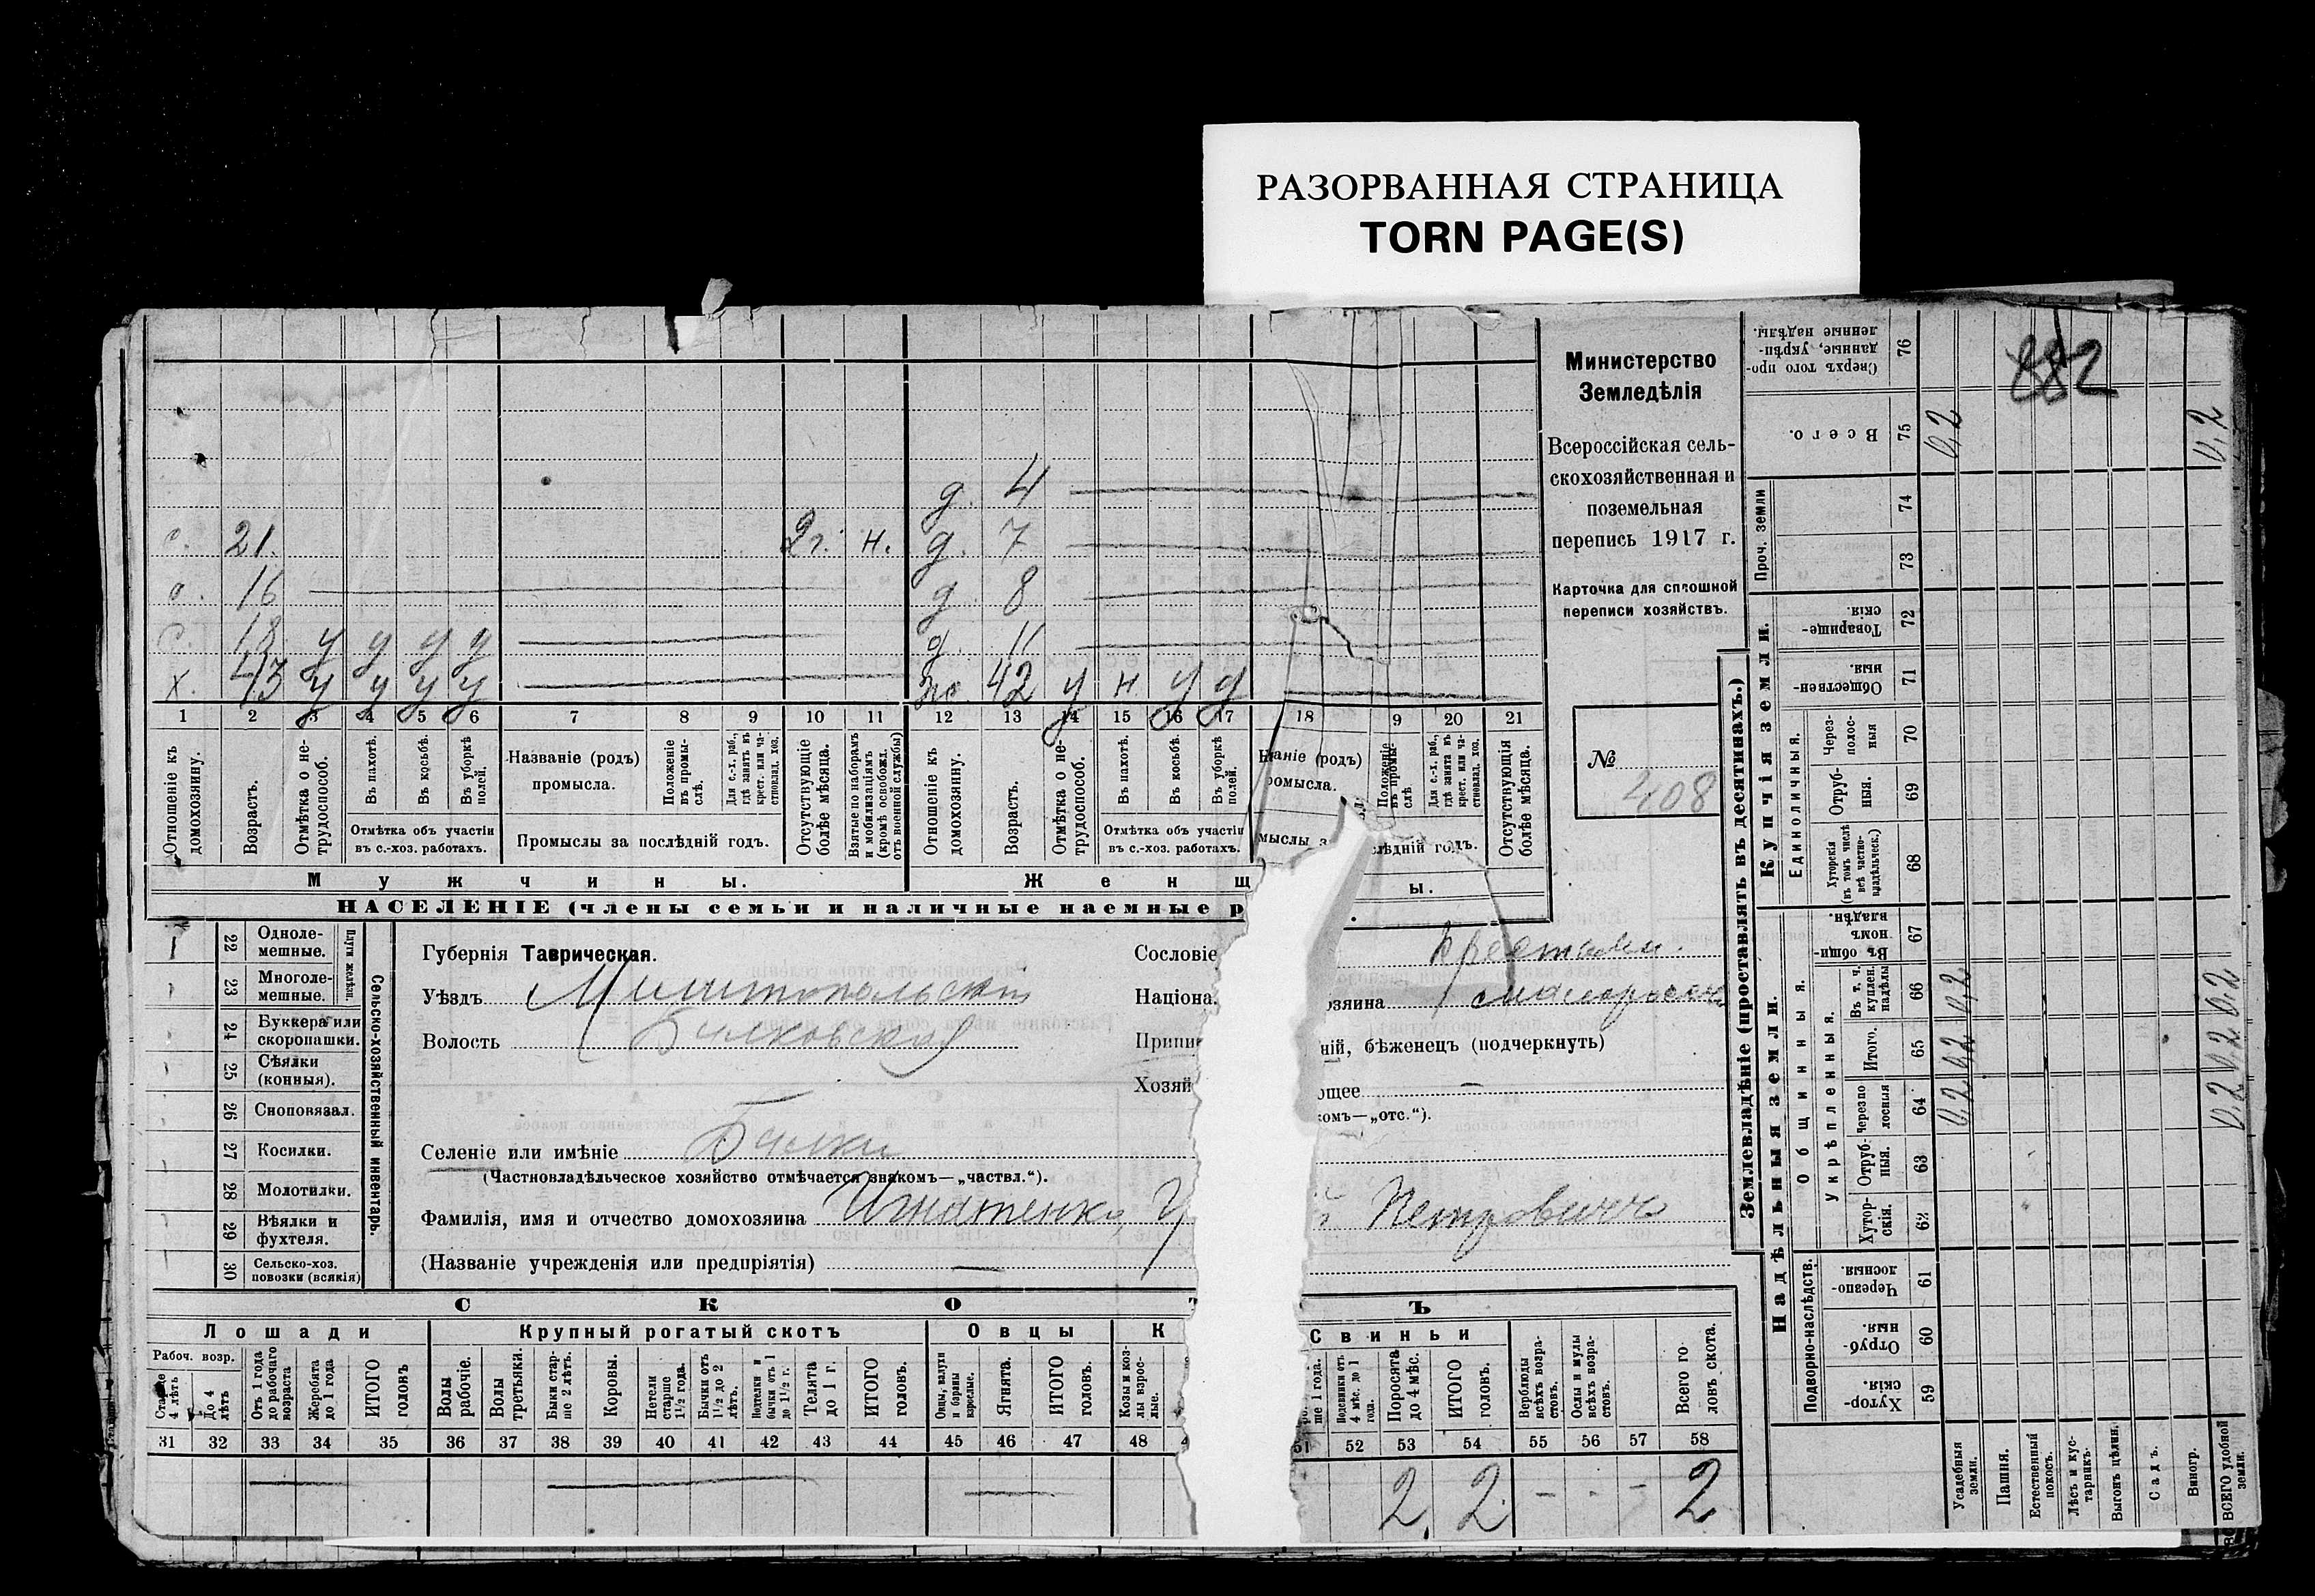 РАЗОРВАННАЯ СТРАНИЦА
TORN PAGE(S)
Министерство
Земледѣлія
Всероссійская сель-
скохозяйственная и
поземельная
перепись 1917 г.
Карточка для сплошной
переписи хозяйствъ.
№
408
882
д. 4
с. 21. 2г. н. д. 7
16 д. 8
с. 18 у у у у д. 11
х. 43 у у у у 42 у н у у
1 2 3 4 5 6 7 8 9 10 11 12 13 14 15 16 17 18 9 20 21
Отношеніе къ домохозяину.
Возрастъ.
Отмѣтка о не-трудоспособ.
Въ пахотѣ.
Въ косьбѣ.
Въ уборкѣ полей.
Отмѣтка объ участіи
въ с.-хоз. работахъ.
Названіе (родъ)
промысла.
Положеніе въ промы-слѣ.
Для с.-х. раб., гдѣ занятъ въ крест. или ча-стновлад. хоз.
Промыслы за послѣдній годъ.
Отсутствующіе болѣе мѣсяца.
Взятые по наборамъ и мобилизаціямъ (кромѣ освобожд. отъ военной службы)
Отношеніе къ домохозяину.
Возрастъ.
Отмѣтка о не-трудоспособ.
Въ пахотѣ.
Въ косьбѣ.
Въ уборкѣ полей.
Отмѣтка объ участіи
въ с.-хоз. работахъ.
аніе (родъ)
ромысла.
Положеніе въ промы-слѣ
Для с.-х. раб., гдѣ занята въ крест. или ча-стновлад. хоз.
мыслы з
слѣдній годъ.
Отсутствующія болѣе мѣсяца.
Мужчины.
Женщ ы.
НАСЕЛЕНІЕ (члены семьи и наличные наемные р
22 Одноле-мешные.
23 Многоле-мешные.
Плуги желѣзн.
24 Буккера или скоропашки.
25 Сѣялки (конныя).
26 Сноповязал.
27 Косилки.
28 Молотилки.
29 Вѣялки и фухтеля.
30 Сельско-хоз. повозки (всякія)
Сельско-хозяйственный инвентарь.
Губернія Таврическая.
Уѣздъ Мелитопольскій
Волость Балковская
Селеніе или имѣніе Балки
(Частновладѣльческое хозяйство отмѣчается знакомъ—„частвл.“).
Фамилія, имя и отчество домохозяина Игнатенко Петровичъ
(Названіе учрежденія или предпріятія)
Сословіе
Націона озяина малороссъ
Припи ній, бѣженецъ (подчеркнуть)
Хозяй ющее
комъ—„отс.“).
СКОТЪ
Лошади
Крупный рогатый скотъ
Овцы
К
Свиньи
Рабоч. возр.
Старше 4 лѣтъ
До 4 лѣтъ
Отъ 1 года до рабочаго возраста
Жеребята до 1 года
ИТОГО головъ
Волы рабочіе.
Волы третьяки.
Быки стар-ше 2 лѣтъ.
Коровы.
Нетели старше 1½ года.
Бычки отъ 1½ до 2 лѣтъ.
Подтелки и бычки отъ 1 до 1½ г.
Телята до 1 г.
ИТОГО головъ.
Овцы, валухи и бараны взрослые.
Ягнята.
ИТОГО головъ.
Козы и коз-лы взрос-лые.
ше 1 года.
Подсвинки отъ 4 мѣс. до 1 года.
Поросята до 4 мѣс.
ИТОГО головъ.
Верблюды всѣхъ возра-стовъ.
Ослы и мулы всѣхъ возра-стовъ.
Всего го-ловъ скота.
31 32 33 34 35 36 37 38 39 40 41 42 43 44 45 46 47 48 51 52 53 54 55 56 57 58
2 2 2
Землевладѣніе (проставлять въ десятинахъ.)
Надѣльныя земли.
Купчія земли.
Общинныя.
Укрѣпленныя.
Подворно-наслѣдств.
Единоличныя.
Проч. земли
Хутор-скія. 59
Отруб-ныя. 60
Черезпо-лосныя 61
Хутор-скія. 62
Отруб-ныя. 63
Черезпо-лосныя 64
Итого. 65
Въ т. ч. куплен. надѣлы 66
Въ общин-номъ владѣн. 67
Хуторскія (въ томъ числѣ всѣ частно-владѣльческ.) 68
Отруб-ныя. 69
Через-полос-ныя 70
Обществен-ныя. 71
Товарище-скія. 72
73
74
Всего. 75
Сверхъ того про-данные, укрѣп-ленные надѣлы. 76
Усадебныя земли.
0,2 0,2 0,2 0,2
Пашня.
Естественный покосъ.
Лѣсъ и кус-тарникъ.
Выгонъ цѣлин.
Садъ.
Виногр.
ВСЕГО удобной земли.
0,2 0,2 0,2 0,2